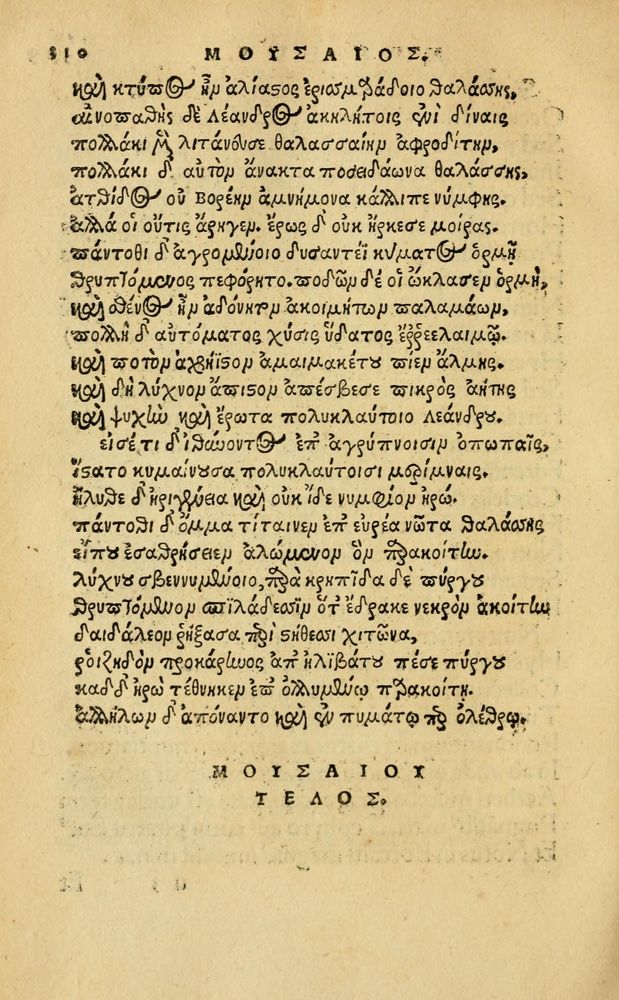 310 ΜΟΥΣΑΙΟΣ.
καὶ κτύπος ἦν ἁλίαστος ἐρισμαράγοιο θαλάσσης,
αἰνοπαθὴς δὲ Λέανδρος ἀκηλήτοις ἐνὶ δίναις
πολλάκι μὲν λιτάνευσε θαλασσαίην ἀφροδίτην,
πολλάκι δ' αὐτὸν ἄνακτα ποσειδάωνα θαλάσσης,
ἀτθίδος οὐ Βορέην ἀμνήμονα κάλλιπε νύμφης.
ἀλλά οἱ οὔτις ἄρηγεν. ἔρως δ' οὐκ ἤρκεσε μοίρας.
πάντοθι δ' ἀγρομένοιο δυσαντέϊ κύματος ὁρμῇ
θρυπτόμενος πεφόρητο. ποδῶν δέ οἱ ὤκλασεν ὁρμή,
καὶ σθένος ἦν ἀδόνητον ἀκοιμήτων παλαμάων,
πολλὴ δ' αὐτόματος χύσις ὕδατος ἔρρεε λαιμῷ.
καὶ ποτὸν ἀχρήϊστον ἀμαιμακέτου πίεν ἅλμης.
καὶ δὴ λύχνον ἄπιστον ἀπέσβεσε πικρὸς ἀήτης
καὶ ψυχὴν καὶ ἔρωτα πολυκλαύτοιο Λεάνδρου.
εἰσέτι δηθύνοντος ἐπ' ἀγρύπνοισιν ὀπωπαῖς,
ἵστατο κυμαίνουσα πολυκλαύτοισι μερίμναις.
ἤλυθε δ' ἠριγένεια καὶ οὐκ ἴδε νυμφίον ἡρώ.
πάντοθι δ' ὄμμα τίταινεν ἐπ' εὐρέα νῶτα θαλάσσης
εἴπου ἐσαθρήσειεν ἀλώμενον ὃν παρακοίτην.
λύχνου σβεννυμένοιο, παρὰ κρηπῖδα δὲ πύργου
θρυπτόμενον σπιλάδεσσιν ὅτ' ἔδρακε νεκρὸν ἀκοίτην
δαιδάλεον ῥήξασα περὶ στήθεσσι χιτῶνα,
ῥοιζηδὸν προκάρηνος ἀπ' ἠλιβάτου πέσε πύργου
καδδ' ἡρὼ τέθνηκεν ἐπ' ὀλλυμένῳ παρακοίτῃ.
ἀλλήλων δ' ἀπόναντο καὶ ἐν πυμάτῳ περ ὀλέθρῳ.
ΜΟΥΣΑΙΟΥ
ΤΕΛΟΣ.